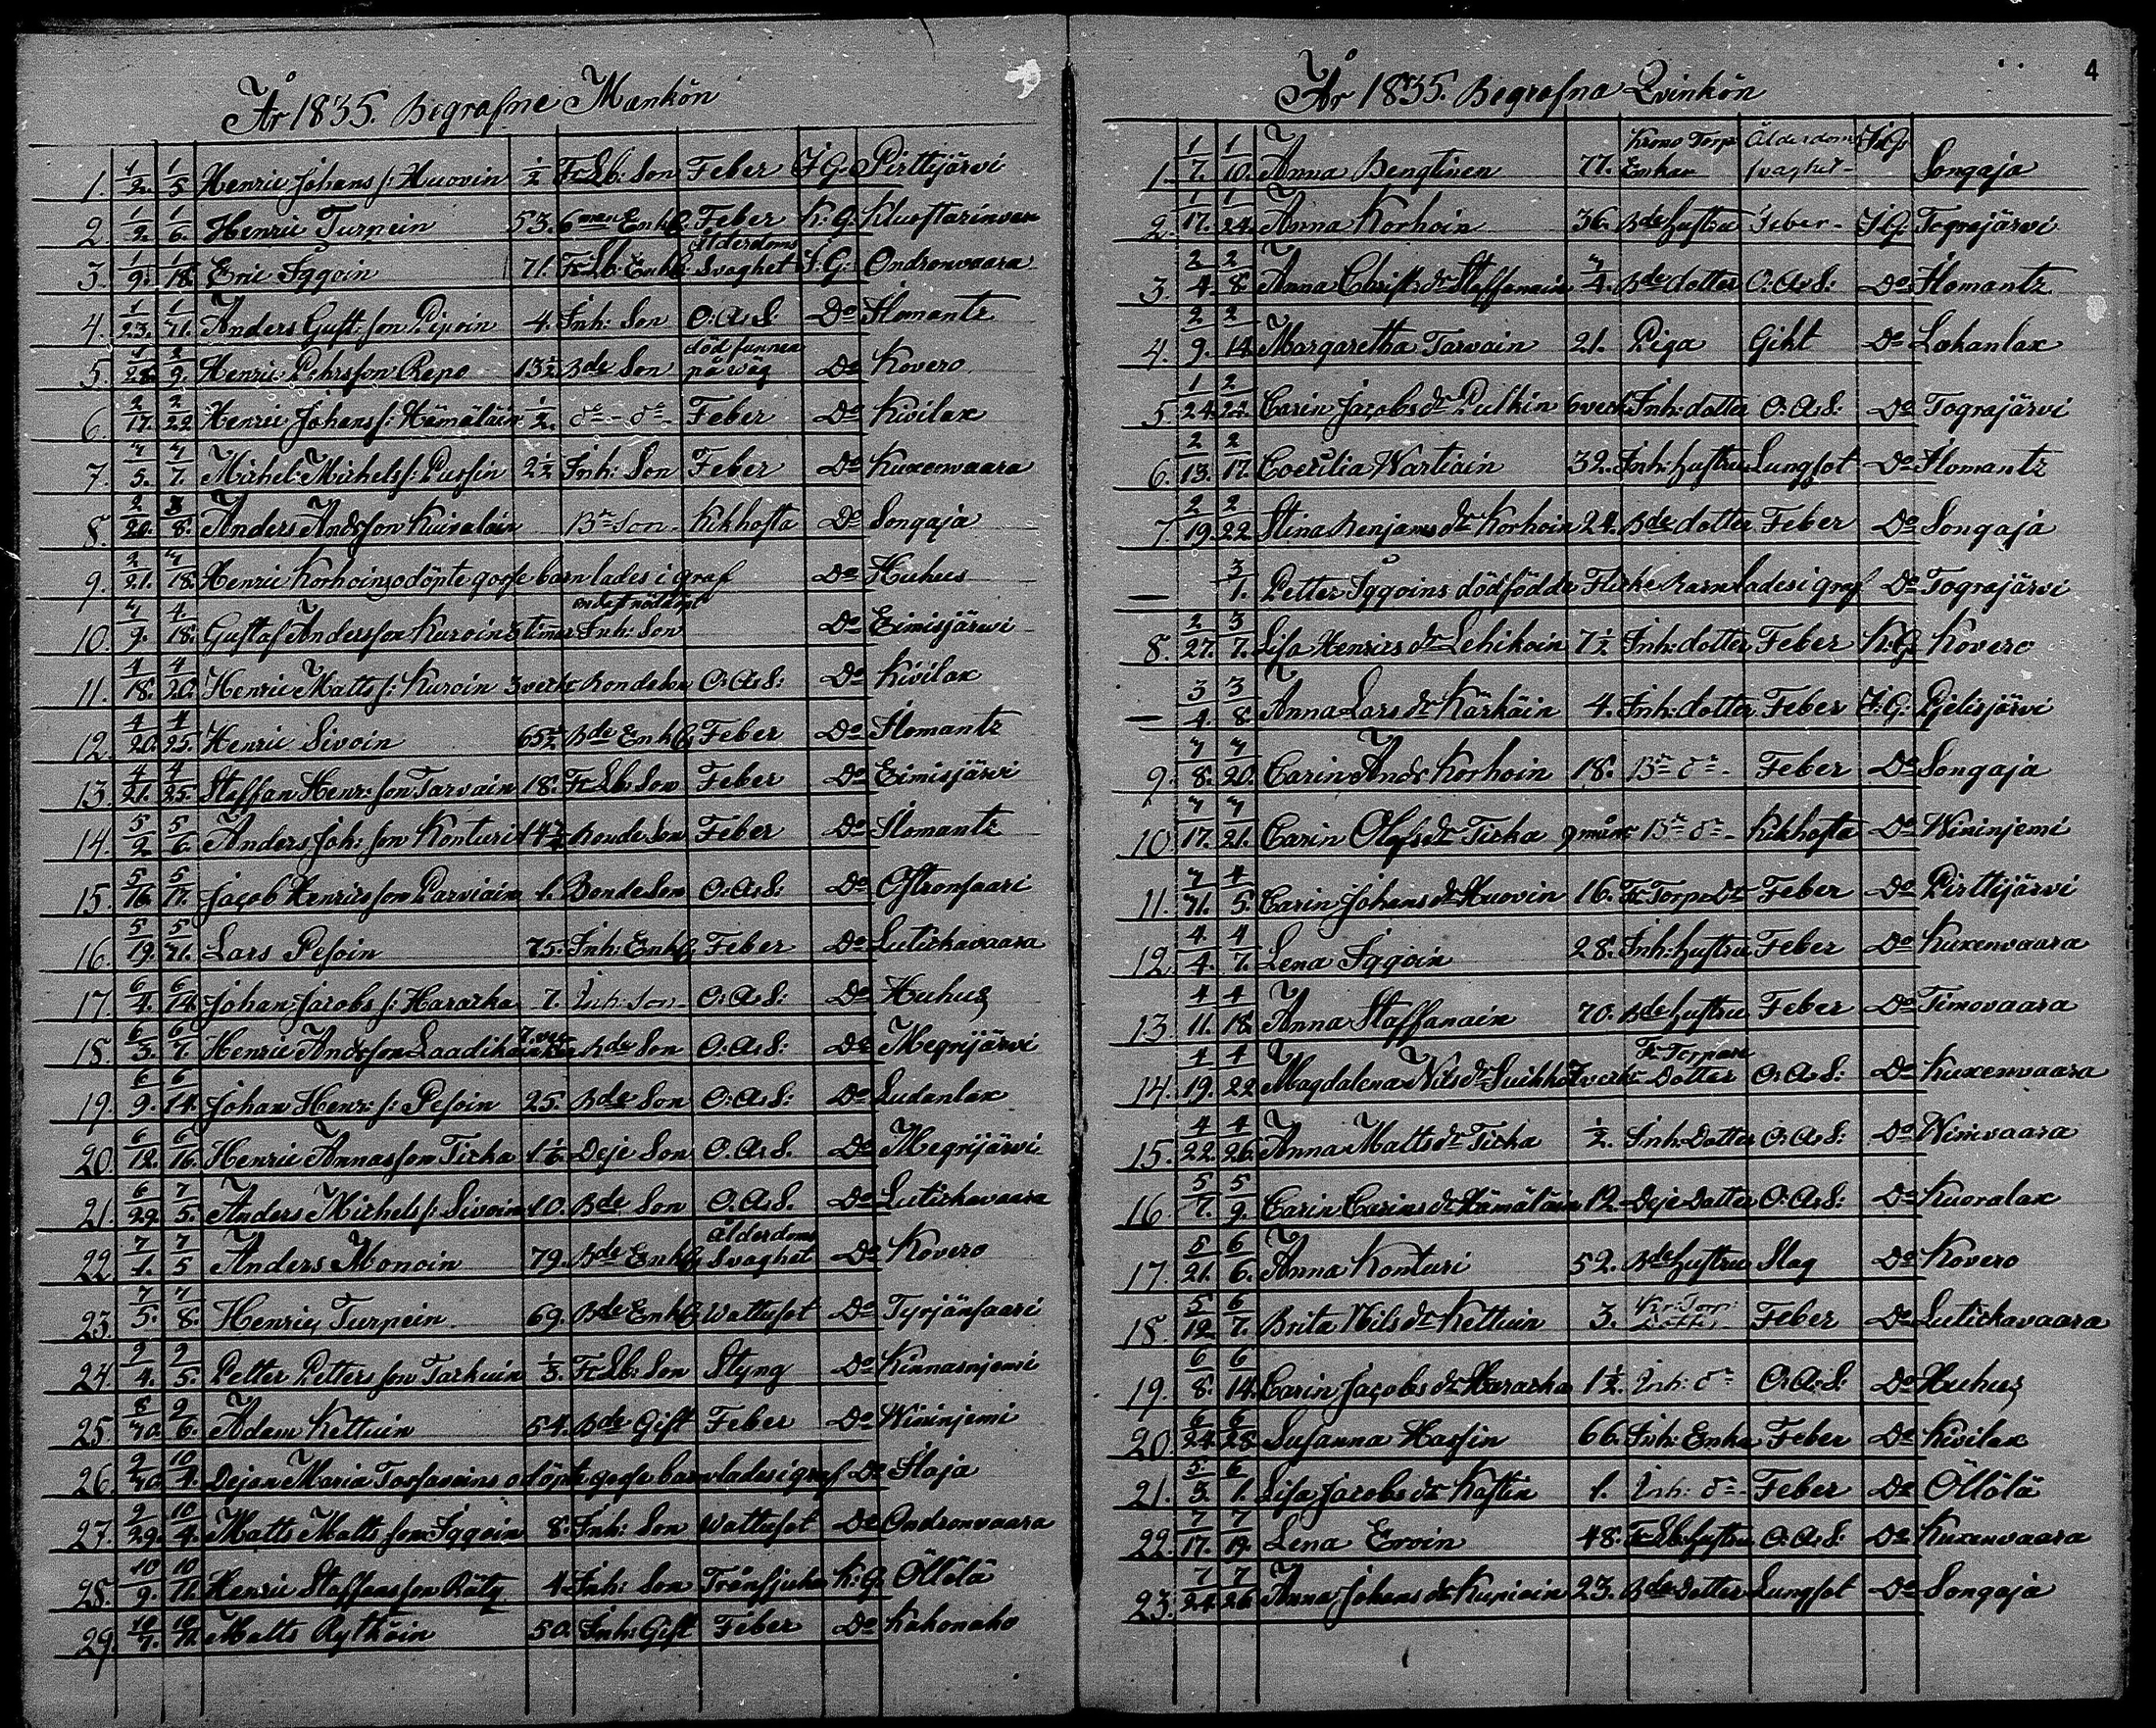 År 1835. Begrafne Mankön
1. 1/2. 1/5 Henric Johans s: Huovin 1/2 Fr Lb: Son Feber J. G. Pirttijärvi
2. 1/2. 1/6. Henric Turpein 53. 6man Enkl. Feber K: G. Kluoftarinvaa
3. 1/9. 1/18. Eric Iggoin 71. Fr Lb: Enkl. ålderdoms Svaghet J: G: Ondronvaara
4. 1/23. 1/31. Anders Gust: son Pipoin 4. Inh: Son O: A: S: Do Ilomantz
5. 1/28. 2/9. Henric Pehrsson Repo 13 1/2 Bde Son död funnen på wäg Do Kovero
6. 2/17. 2/22 Henric Johans s: Hämäläin 1/2. do - do Feber Do Kivilax
7. 3/5. 3/7. Michel Michels s: Pussin 2 1/2 Inh: Son Feber Do Kuxenvaara
8. 2/20. 3/8. Anders Andsson Kuivalain Bde Son Kikhosta Do Songaja
9. 2/21. 3/18. Henric Korhoins odöpte gosse barn lades i graf Do Huhus
10. 3/9. 4/18. Gustaf Andersson Kuroin 3 timar Inh: Son endast nöddöpt Do Eimisjärvi
11. 4/18. 4/20. Henric Matts s: Kuroin 3 veck Bonde Son O: A: S: Do Kivilax
12. 4/20. 4/25. Henric Sivoin 65 1/2 Bde Enkl. Feber Do Ilomantz
13. 4/21. 4/25. Staffan Henr: son Tarvain 18. Fr Lb: Son Feber Do Eimisjärvi
14. 5/2. 5/6. Anders Joh: son Konturi Bonde Son Feber Do Ilomantz
15. 5/16. 5/17. Jacob Henricsson Parviain 1. Bonde Son O: A: S: Do Oftronsaari
16. 5/19. 5/31. Lars Pesoin 75. Inh: Enkl. Feber Do Lutickavaara
17. 6/4. 6/14. Johan Jacobs s: Hararka 7. Inh: Son O: A: S: Do Huhus
18. 6/3. 6/7. Henric Andsson Laadikain Bde Son O: A: S: Do Megrijärvi
19. 6/9. 6/14. Johan Henr: s: Pesoin 25. Bde Son O: A: S: Do Ludanlax
20. 6/12. 6/16. Henric Annasson Ticka Deje Son O. A. S. Do Megrijärvi
21. 6/29. 7/5. Anders Michels s: Sivoin 10. Bde Son O. A. S. Do Lutickavaara
22. 7/1. 7/5 Anders Monoin 79. Bde Enkl. ålderdoms Svaghet Do Kovero
23. 7/5. 7/8. Henric Turpein 69. Bde Enkl. Wattusot Do Tyrjänsaari
24. 2/4. 2/5. Petter Petters son Tarkuin 1/3. Fr Lb: Son Styng Do Kinnasnjemi
25. 8/30. 9/6. Adam Kettuin 54. Bde Gift Feber Do Wininjemi
26. 9/30. 10/4. Dejan Maria Torsavains odöpte gosse barn lades i graf Do Ilaja
27. 9/29. 10/4. Matts Matts son Iggoin 8. Inh: Son Wattusot Do Ondronvaara
28. 10/9. 10/11. Henric Staffansson Räty 4. Inh: Son Trånsjuka K: G. Öllölä
29. 10/7. 10/11. Matts Rytköin 50. Inh: Gift Feber Do Kakonaho
4
År 1835. Begrafna Qvinkön
1. 1/7. 1/10. Anna Bengtinen 77. Krono Torp Enkan Ålderdoms svaghet J. G. Songaja
2. 1/17. 1/24. Anna Korhoin 36. Bde hustru Feber J. G. Tograjärvi
3. 2/4. 2/8. Anna Christs dr Staffanain 3/4. Bde dotter O: A: S: Do Ilomantz
4. 2/9. 2/14. Margaretha Tarvain 21. Piga Gikt Do Lahanlax
5. 1/24. Carin Jacobs dr Pulkin 6 veck Inh: dotter O: A: S: Do Tograjärvi
6. 2/13. 2/17. Coecilia Wartiain 32. Inh: hustru Lungsot Do Ilomantz
7. 2/19. 2/22 Stina Benjams dr Korhoin 24. Bde dotter Feber Do Songaja
— 3/1. Petter Iggoins dödfödde Flicke Barn lades i graf Do Tograjärvi
8. 2/27. 3/7. Lisa Henrics dr Lehikoin 7 1/2 Inh: dotter Feber K: G. Kovero
— 3/4. 3/8 Anna Lars dr Kärkäin 4. Inh: dotter Feber J. G: Pielisjärvi
9. 3/8. 3/20. Carin Ands Korhoin 18. Bde dr Feber Do Songaja
10 3/17. 3/21. Carin Olofs dr Ticka 9 mån: Bde dr Kikhosta Do Wininjemi
11. 3/31. 4/5. Carin Johans dr Huovin 16. Fr Torp: Dr Feber Do Pirttijärvi
12. 4/4. 4/7. Lena Iggoin 28. Inh: hustru Feber Do Kuxenvaara
13. 4/11. 4/18. Anna Staffanain 70. Bde hustru Feber Do Timovaara
14. 4/19. 4/22 Magdalena Nils dr Suikko veck Fr Torpare Dotter O: A: S: Do Kuxenvaara
15. 4/22. 4/26. Anna Matts dr Ticka 1/2. Inh: Dotter O: A: S: Do Winivaara
16. 5/7. 5/9. Carin Carins dr Hämäläin 12. Deje Dotter O: A: S: Do Kuoralax
17. 5/21. 6/6. Anna Konturi 52. Bde hustru Slag Do Kovero
18. 5/12. 6/7. Brita Nils dr Kettuin 3. Kr: Torp: Dotter Feber Do Lutickavaara
19. 6/8. 6/14. Carin Jacobs dr Hararka 1 1/2. Inh: dr O: A: S: Do Huhus
20. 6/24. 6/28 Susanna Hassin 66. Inh: Enka Feber Do Kivilax
21. 5/3. 6/1. Lisa Jacobs dr Kastin 1. Inh: dr Feber Do Öllölä
22. 7/17. 7/19. Lena Ervin 48. Fr Lb: hustru O: A: S: Do Kuxenvaara
23. 7/24. 7/26 Anna Johans dr Kupiain 23. Bde Dotter Lungsot Do Songaja